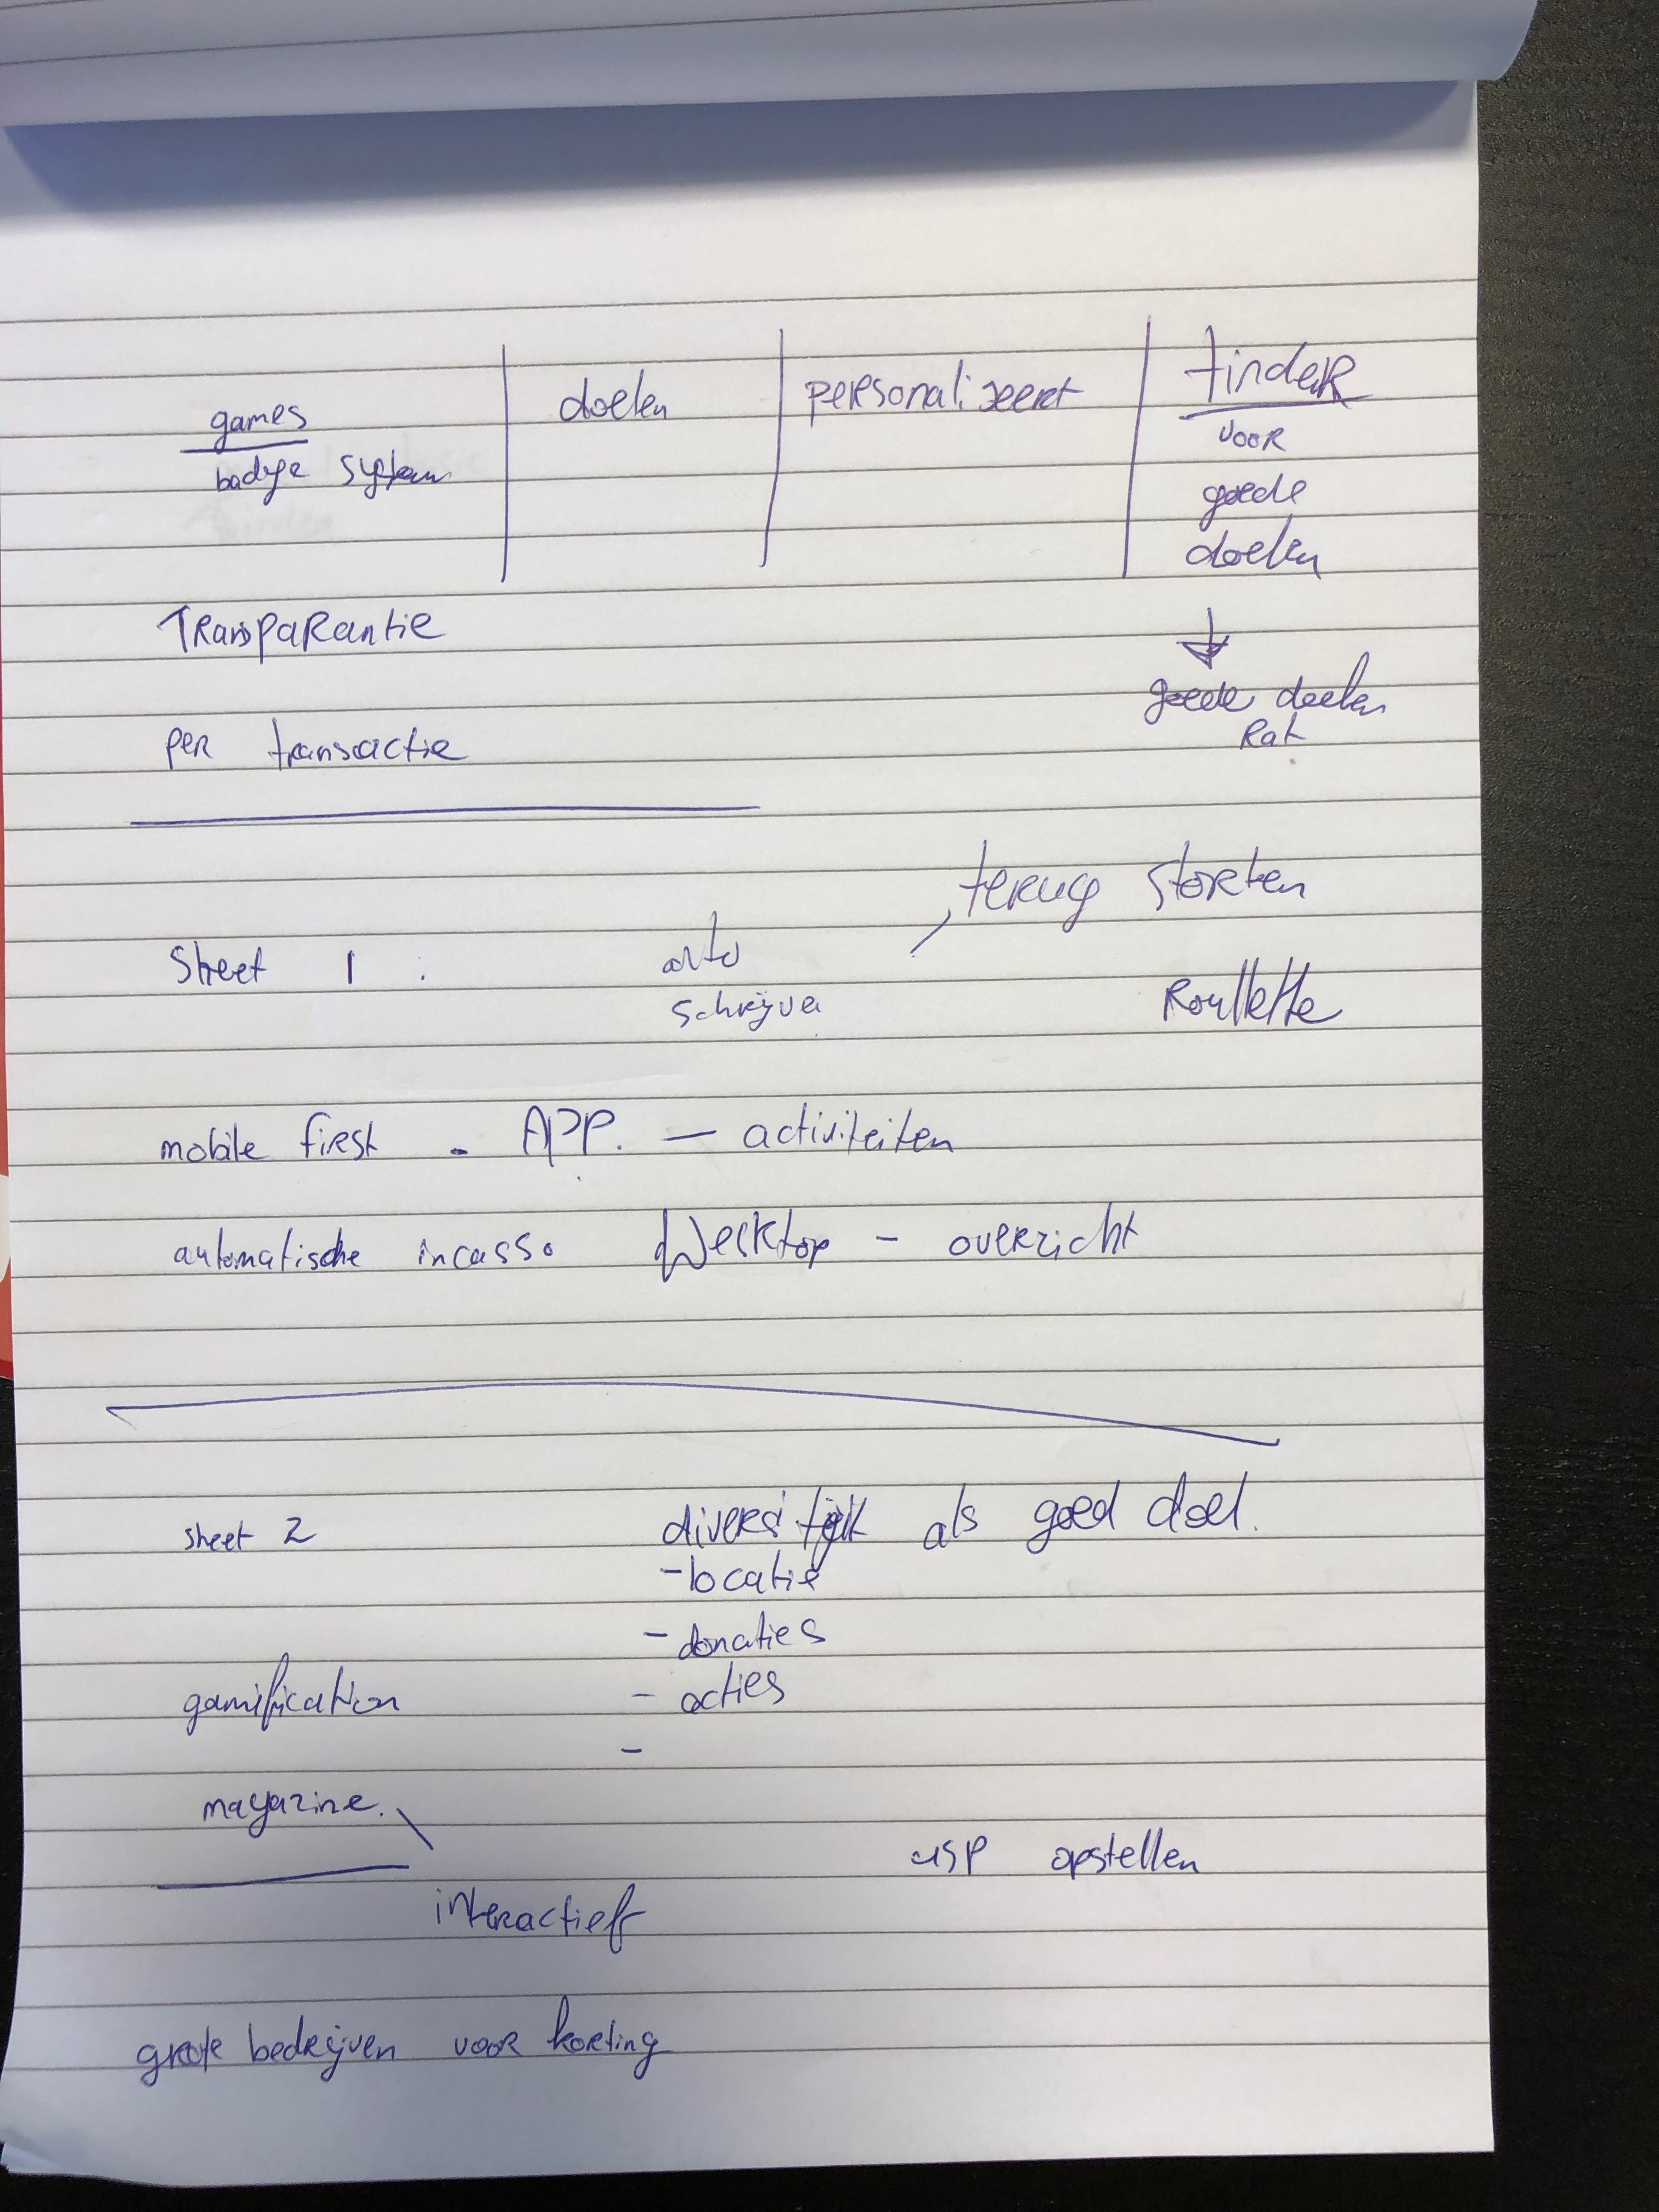 games
badge system
doelen
personaliseert
tinder
voor
goede
doelen
goede doelen
Rat
Transparantie
per transactie
terug storten
Sheet 1.
auto
schrijven
Roullette
mobile first - APP. - activiteiten
automatische incasso Desktop - overzicht
sheet 2
diversiteit als goed doel.
- locatie
- donaties
- acties
-
gamification
magazine.
interactief
usp opstellen
grote bedrijven voor korting